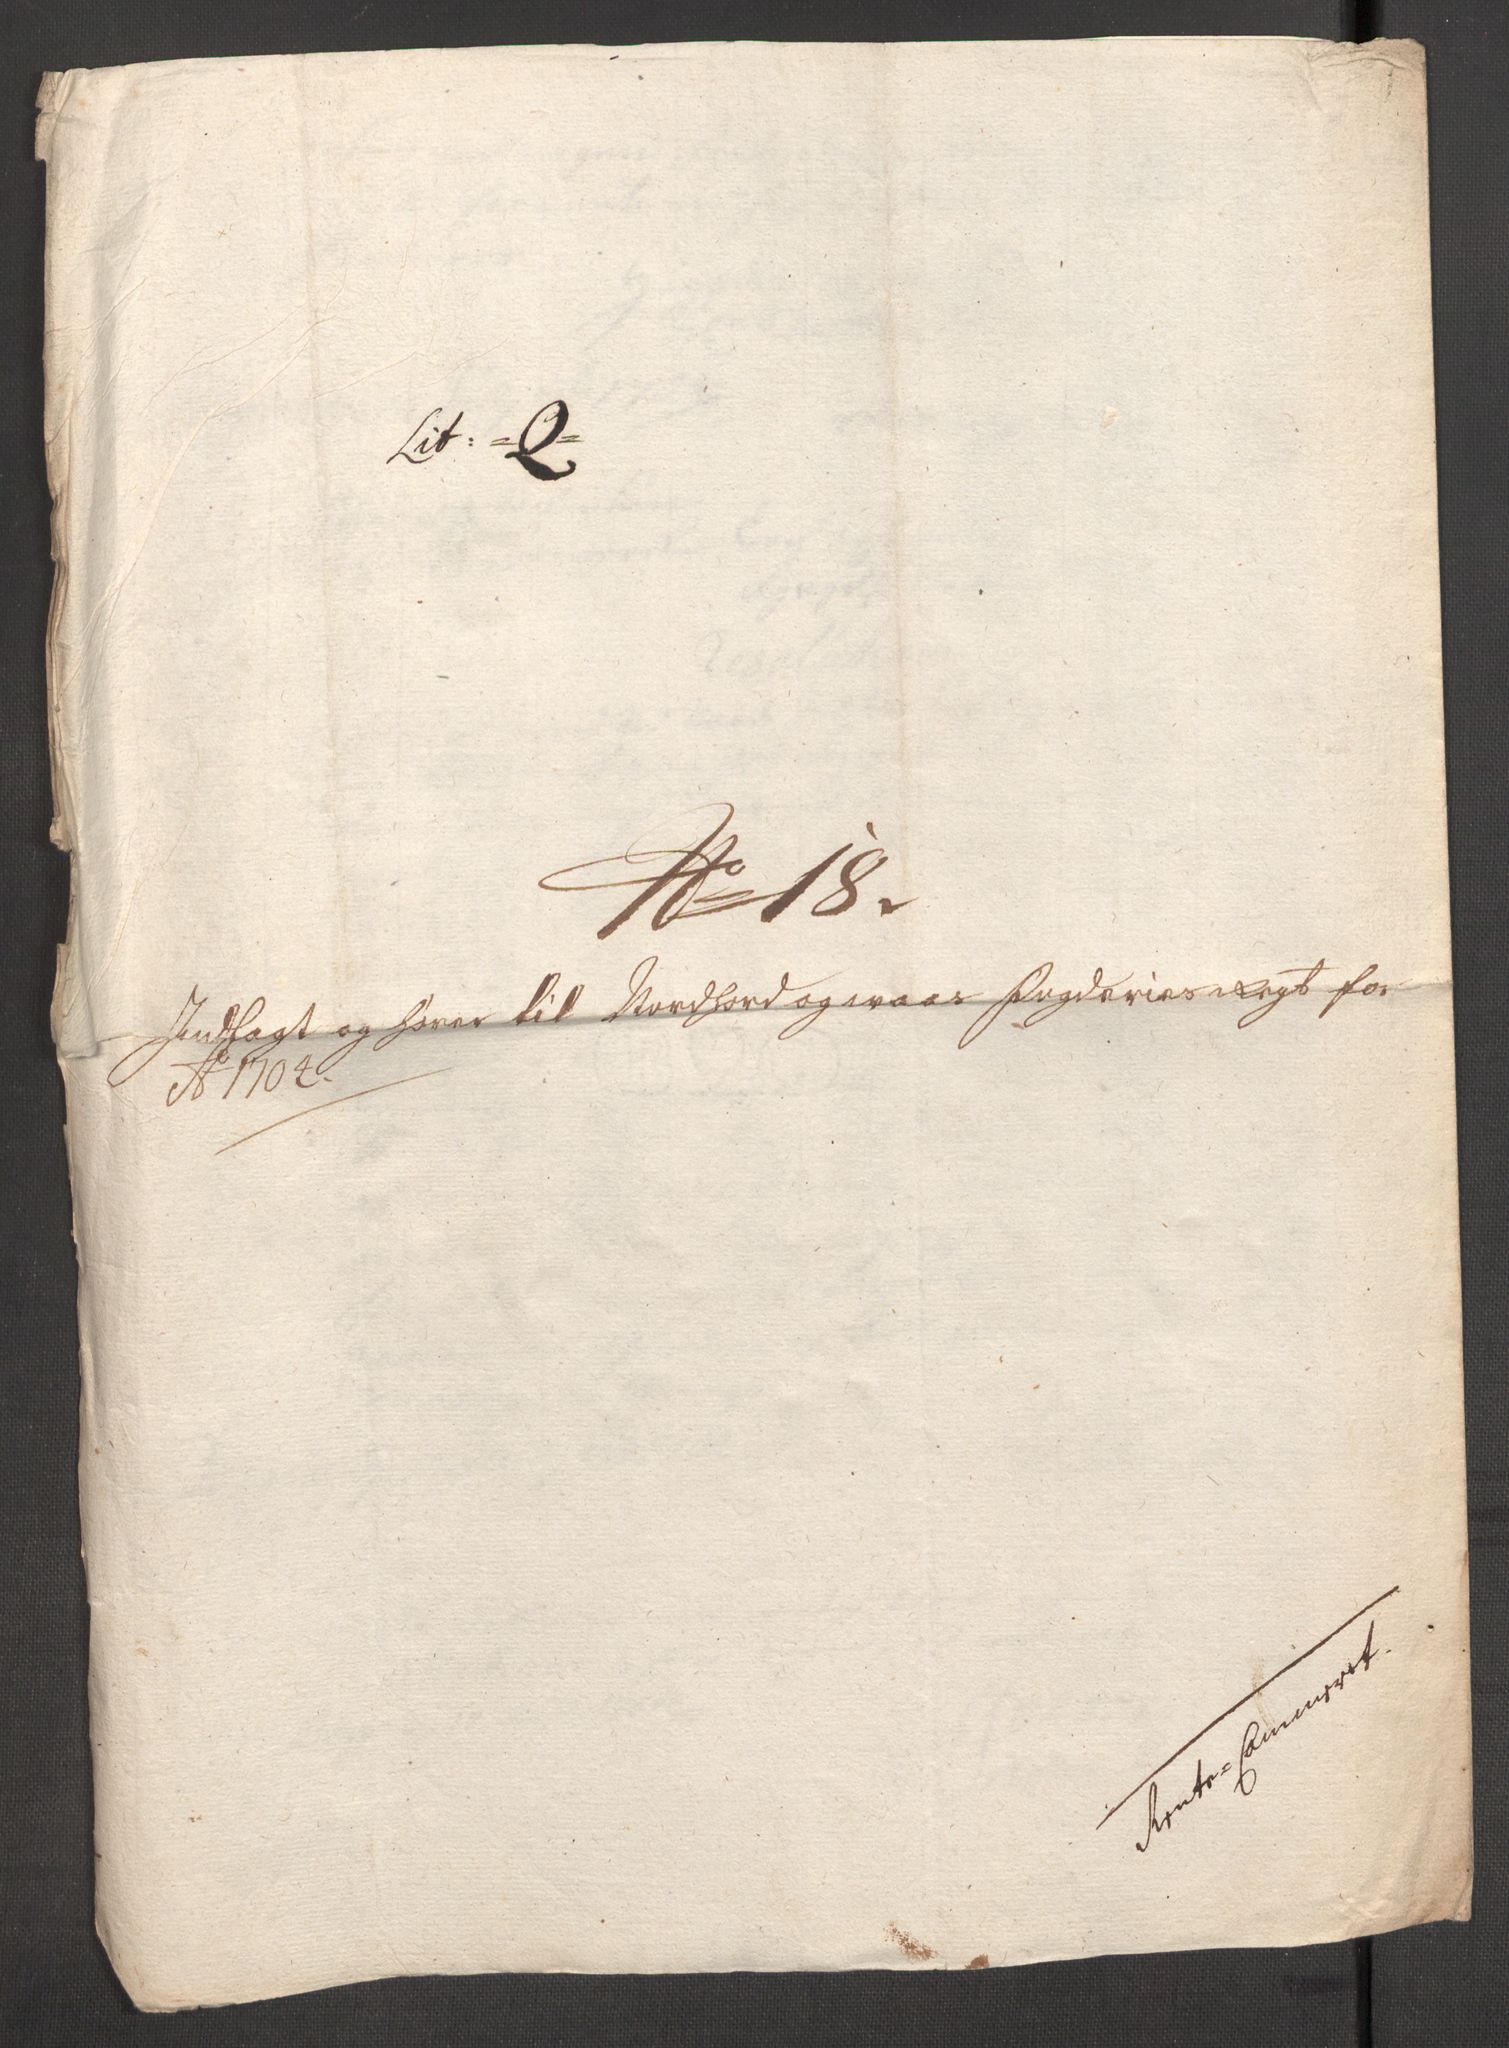 Lit: =Q=
No 18.
Indlagt og hører til Nordhord og waas fogderies regnsk for
Ao 1704.
Rente=Cammeret.